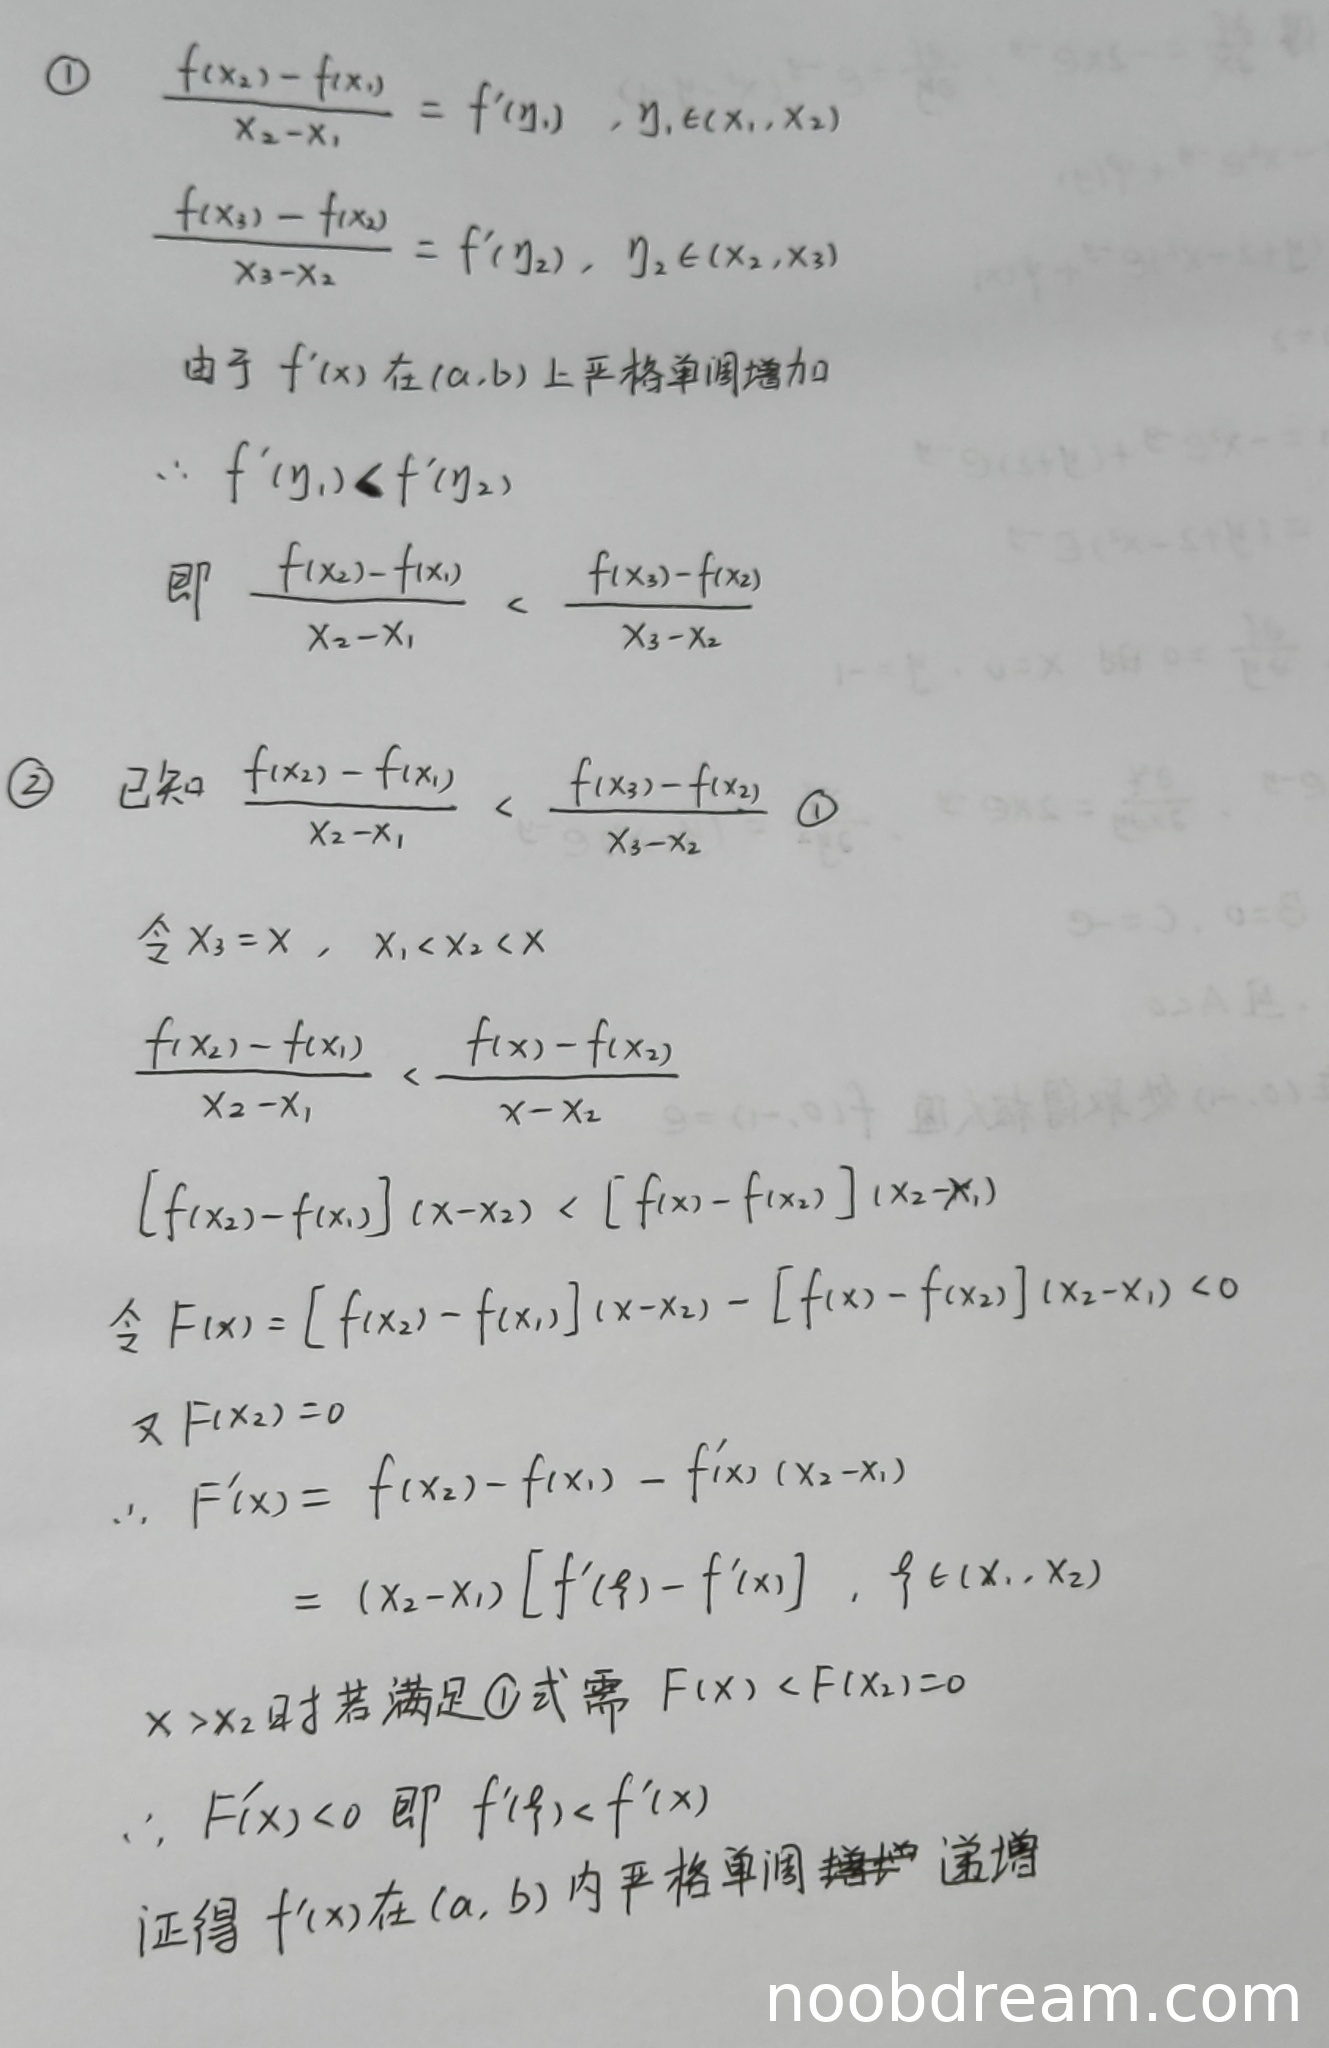 ① \frac{f(x_2)-f(x_1)}{x_2-x_1} = f'(η_1) , η_1∈(x_1,x_2)
\frac{f(x_3)-f(x_2)}{x_3-x_2} = f'(η_2), η_2∈(x_2,x_3)
由于 f'(x) 在(a,b)上严格单调增加
∴ f'(η_1)<f'(η_2)
即 \frac{f(x_2)-f(x_1)}{x_2-x_1} < \frac{f(x_3)-f(x_2)}{x_3-x_2}
② 已知 \frac{f(x_2)-f(x_1)}{x_2-x_1} < \frac{f(x_3)-f(x_2)}{x_3-x_2} ①
令 x_3=x , x_1<x_2<x
\frac{f(x_2)-f(x_1)}{x_2-x_1} < \frac{f(x)-f(x_2)}{x-x_2}
[f(x_2)-f(x_1)](x-x_2) < [f(x)-f(x_2)](x_2-x_1)
令 F(x)=[f(x_2)-f(x_1)](x-x_2)-[f(x)-f(x_2)](x_2-x_1)<0
又 F(x_2)=0
∴ F'(x)= f(x_2)-f(x_1)-f'(x)(x_2-x_1)
= (x_2-x_1)[f'(ξ)-f'(x)] , ξ∈(x_1,x_2)
x>x_2时若满足①式需 F(x)<F(x_2)=0
∴ F'(x)<0 即 f'(ξ)<f'(x)
证得 f'(x)在(a,b)内严格单调递增
noobdream.com